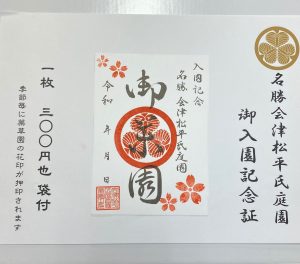 名勝会津松平氏庭園
御入園記念証
入園記念
名勝 会津松平氏庭園
御薬園
令和 年 月 日
一枚 三〇〇円也 袋付
季節毎に薬草園の花印が押印されます